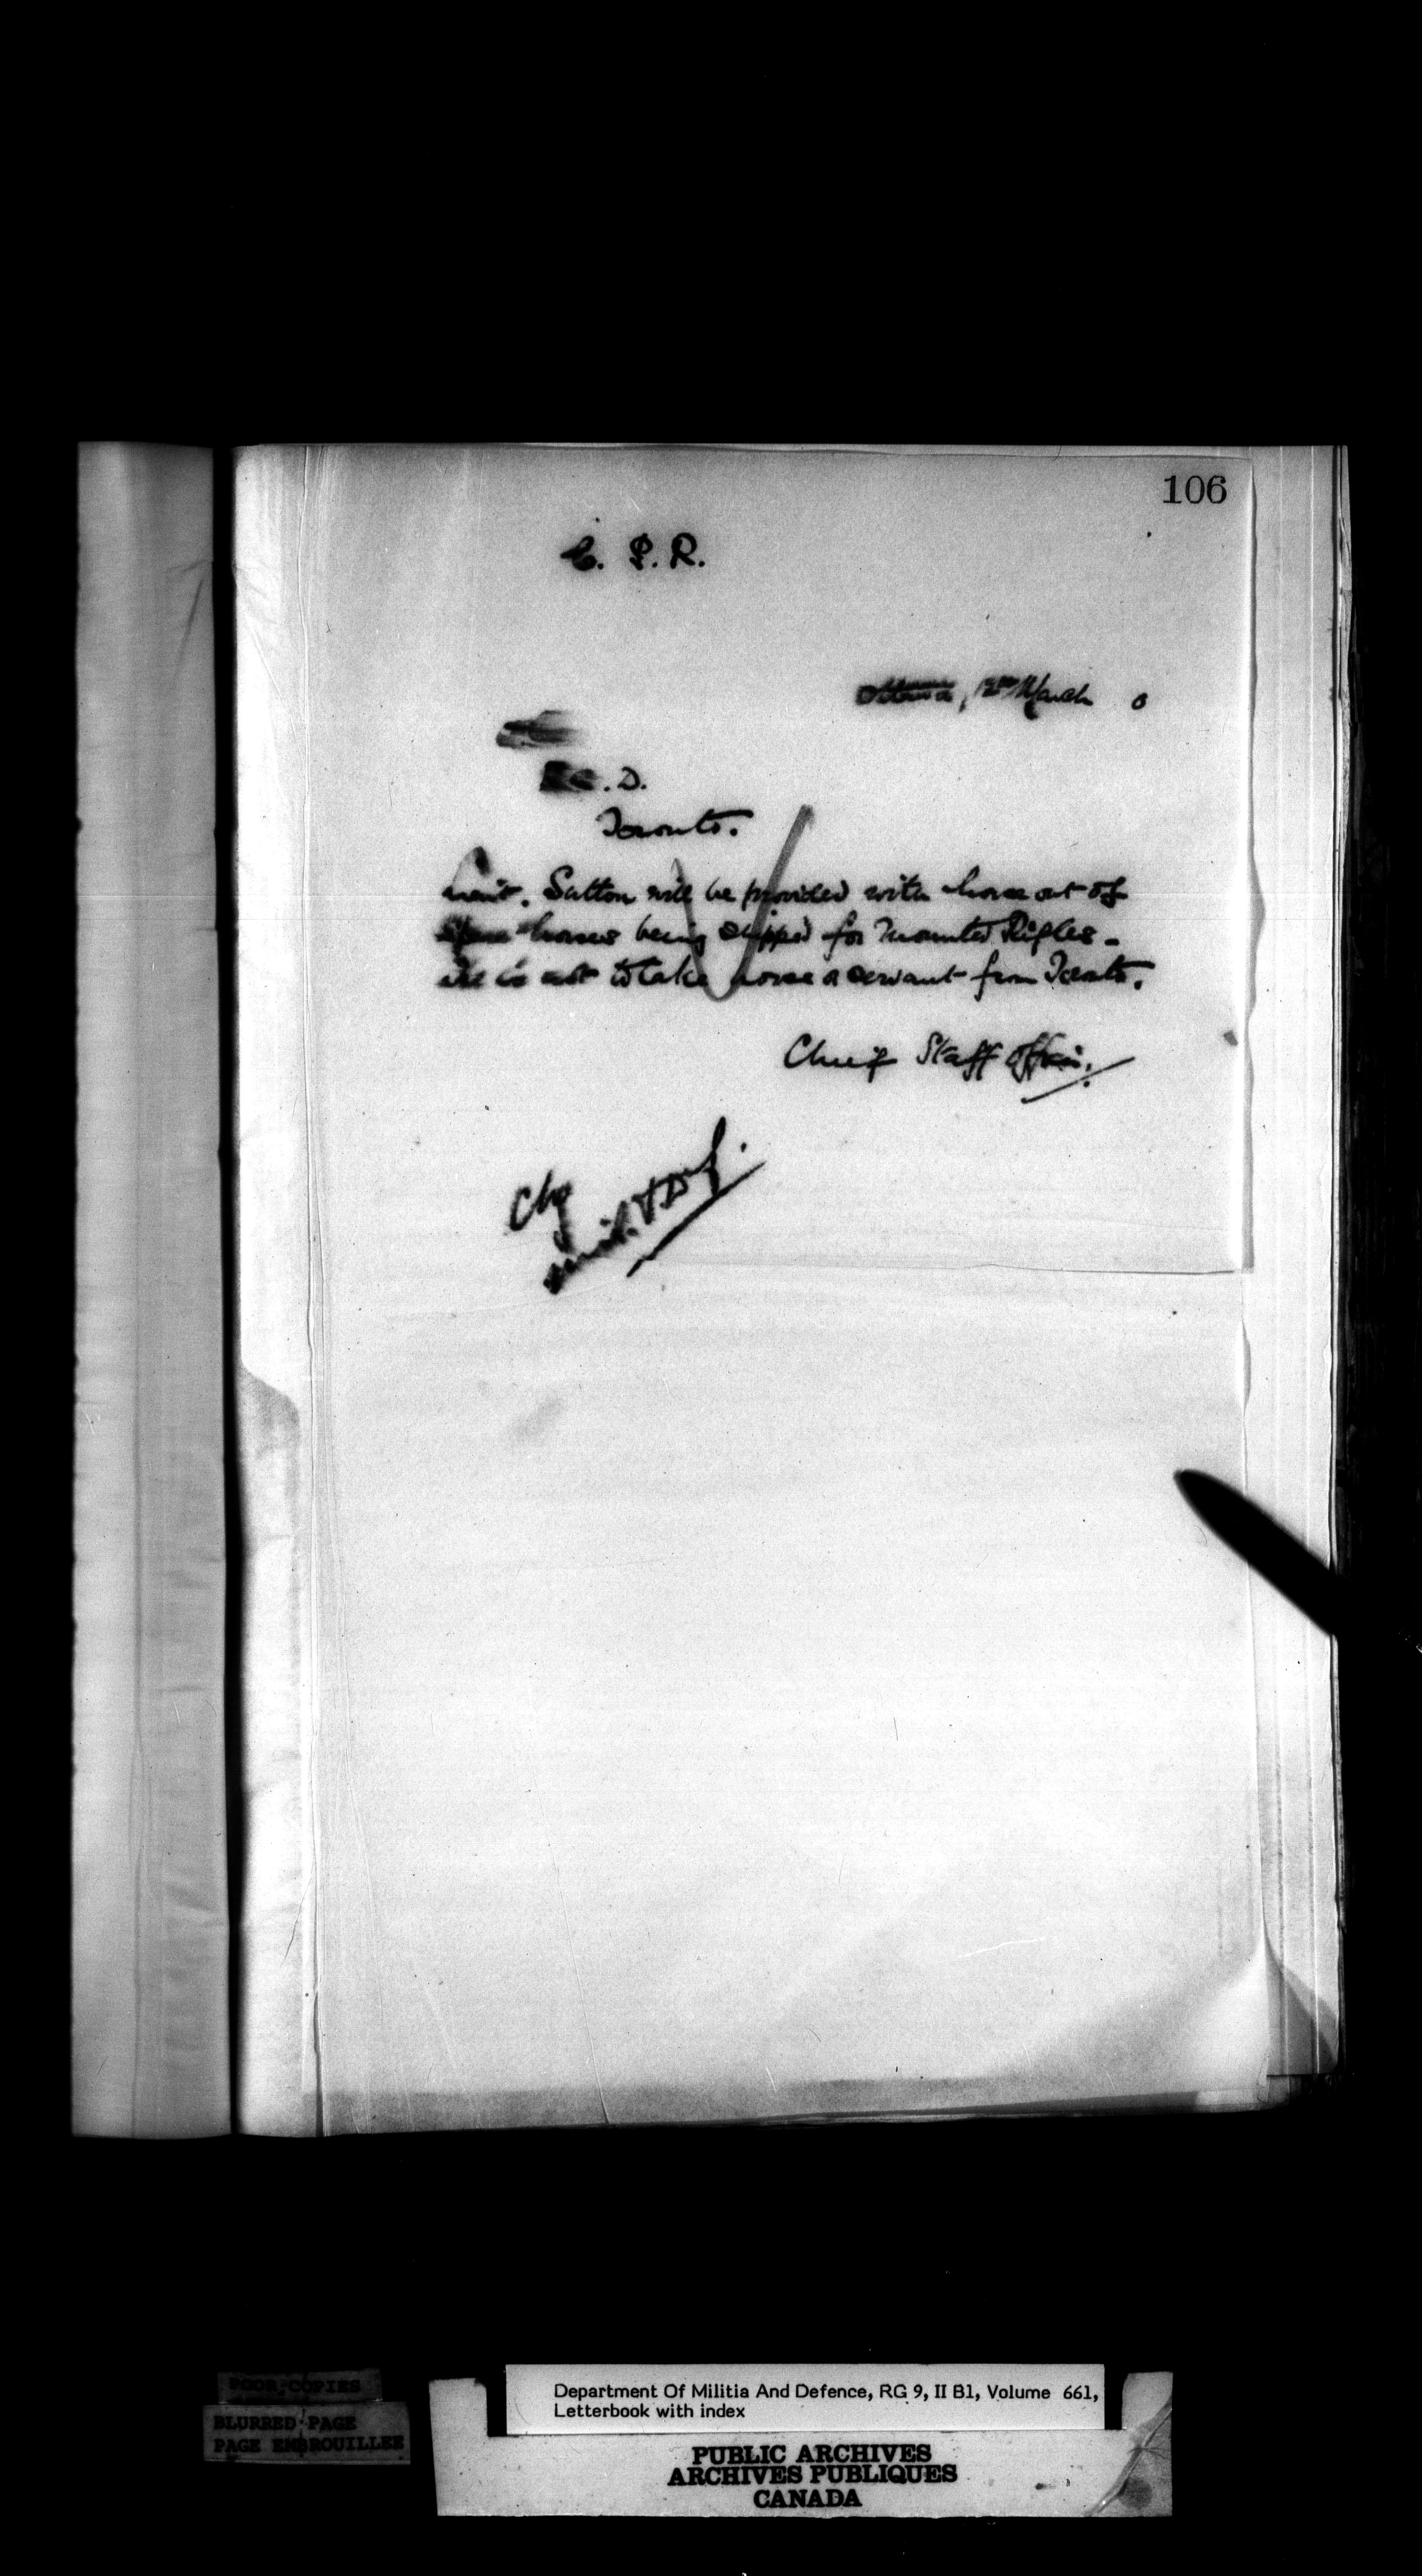 106
C. P. R.
Ottawa, 12th March 0
D.
Toronto.
Lieut. Sutton will be provided with horse out of
spare horses being shipped for Mounted Rifles.
He is not to take horse or servant from Toronto.
Chief Staff Officer.
Chg
Mil. & Def.
POOR COPIES
BLURRED PAGE
PAGE EMBROUILLEE
Department Of Militia And Defence, RG 9, II B1, Volume 661,
Letterbook with index
PUBLIC ARCHIVES
ARCHIVES PUBLIQUES
CANADA